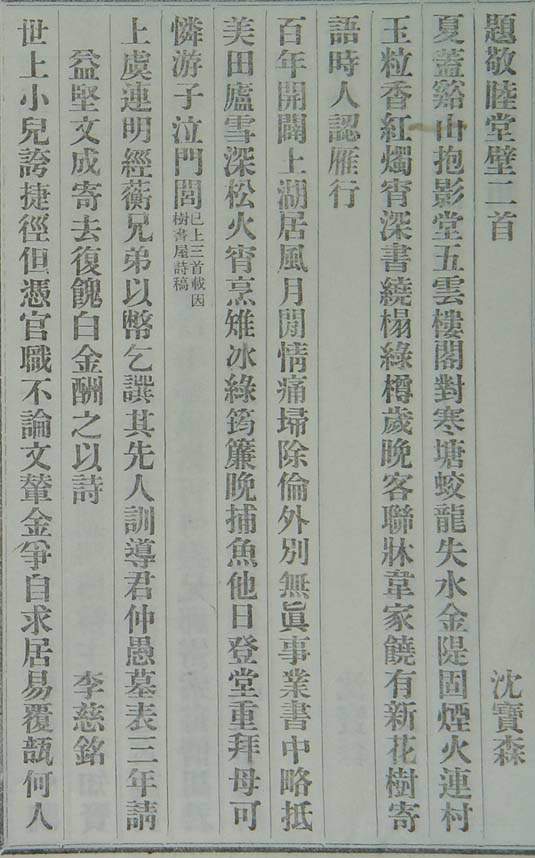 題敬陸堂壁二首　沈寶森
夏蓋谿山抱影堂五雲樓閣對寒塘蛟龍失水金隄固煙火連村
玉粒香紅燭宵深書繞榻綠樽歲晚客聯牀韋家饒有新花樹寄
語時人認雁行
百年開闢上湖居風月閒情痛埽除倫外別無眞事業書中略抵
美田廬雪深松火宵烹雉冰綠筠簾晚捕魚他日登堂重拜母可
憐游子泣門閭已上三首載因樹書屋詩稿
上虞連明經蘅兄弟以幣乞譔其先人訓導君仲愚墓表三年請
益堅文成寄去復餽白金酬之以詩　李慈銘
世上小兒誇捷徑但憑官職不論文輦金爭自求居易覆瓿何人